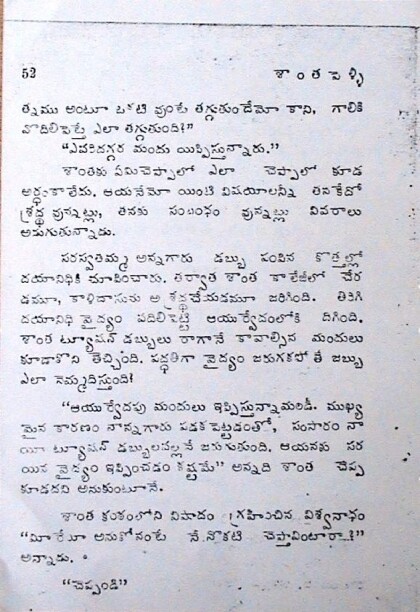 52 శాంతపెళ్ళి
త్నము అంటూ ఒకటి వుంటే తగ్గుతుందేమో కాని, గాలికి
వొదిలిపెస్తే ఎలా తగ్గుతుంది?”
“ఎవరిదగ్గర మందు యిప్పిస్తున్నారు.”
శాంతకు ఏమిచెప్పాలో ఎలా చెప్పాలో కూడ
అర్థంకాలేదు. ఆయనేమో యింటి విషయాలన్నీ తనకేదో
శ్రద్ధ వున్నట్లు, తనకు సంబంధం వున్నట్లు వివరాలు
అడుగుతున్నాడు.
సరస్వతమ్మ అన్నగారు డబ్బు పంపిన కొత్తల్లో
దయానిధికి చూపించారు. తర్వాత శాంత కాలేజీలో చేర
డమూ, కాళిదాసుకు అశ్రద్ధచేయడమూ జరిగింది. తిరిగి
దయానిధి వైద్యం వదిలిపెట్టి ఆయుర్వేదంలోకి దిగింది.
శాంత ట్యూషన్ డబ్బులు రాగానే కావాల్సిన మందులు
కూడాకొని తెచ్చింది. పద్ధతిగా వైద్యం జరుగకపోతే జబ్బు
ఎలా నెమ్మదిస్తుంది?
“ఆయుర్వేదపు మందులు ఇప్పిస్తున్నామండీ. ముఖ్య
మైన కారణం నాన్నగారు పడకపెట్టడంతో, సంసారం నా
యీ ట్యూషన్ డబ్బులవల్లనే జరుగుతుంది. ఆయనకు సర
యిన వైద్యం ఇప్పించడం కష్టమే” అన్నది శాంత చెప్ప
కూడదని అనుకుంటూనే.
శాంత కంఠంలోని విషాదం గ్రహించిన విశ్వనాధం
“మీరేమీ అనుకోనంటే నేనొకటి చెప్తావింటారా?”
అన్నాడు.
“చెప్పండి”